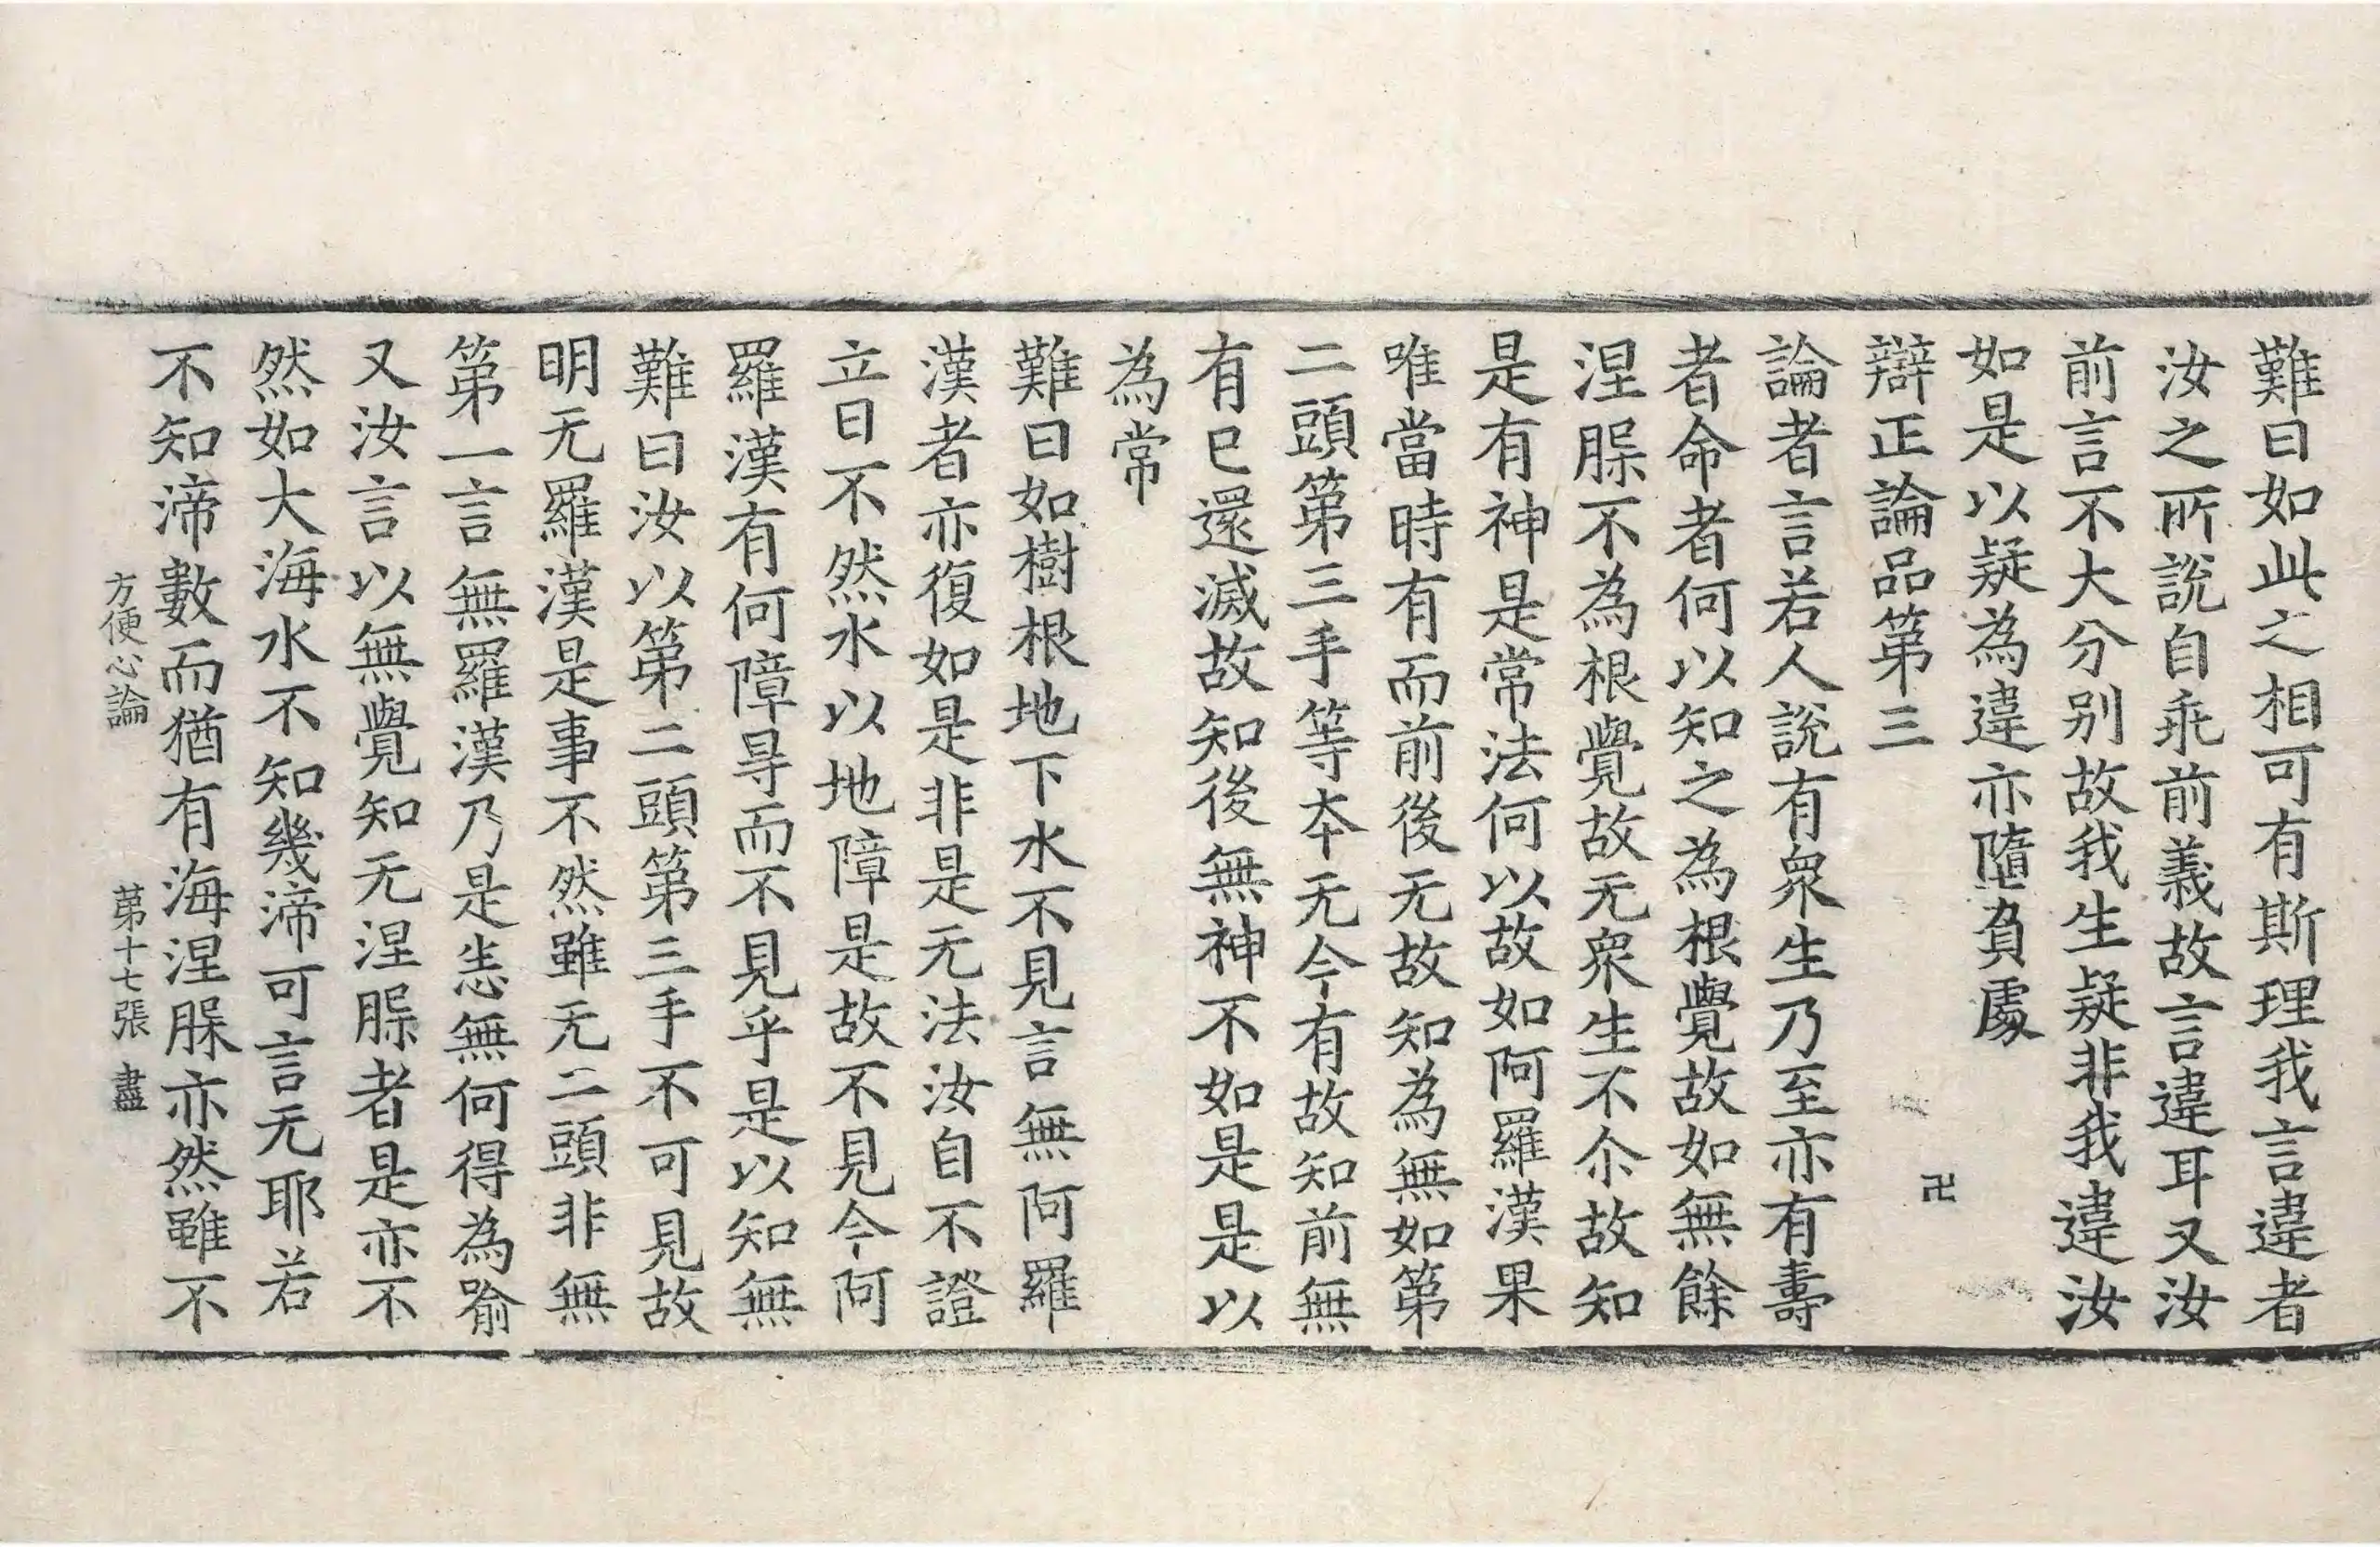 難曰如此之相可有斯理我言違者
汝之所說自乖前義故言違耳又汝
前言不大分別故我生疑非我違汝
如是以疑為違亦墮負處
辯正論品第三
卍
論者言若人說有眾生乃至亦有壽
者命者何以知之為根覺故如無餘
涅槃不為根覺故无眾生不尒故知
是有神是常法何以故如阿羅漢果
唯當時有而前後无故知為無如第
二頭第三手等夲无今有故知前無
有已還滅故知後無神不如是是以
為常
難曰如樹根地下水不見言無阿羅
漢者亦復如是非是无法汝自不證
立曰不然水以地障是故不見今阿
羅漢有何障㝵而不見乎是以知無
難曰汝以第二頭第三手不可見故
明无羅漢是事不然雖无二頭非無
第一言無羅漢乃是悉無何得為喻
又汝言以無覺知无涅槃者是亦不
然如大海水不知幾渧可言无耶若
不知渧數而猶有海涅槃亦然雖不
方便心論 第十七張 盡